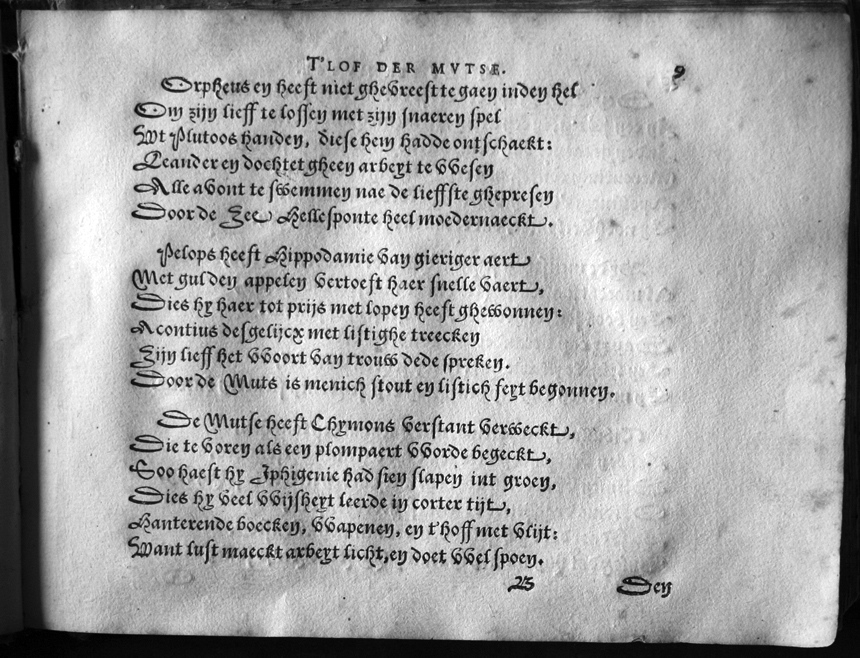 T'LOF DER MVTSE. 9
Orpheus en heeft niet ghevreest te gaen inden hel
Om zijn lieff te lossen met zijn snaeren spel
Wt Plutoos handen, diese hem hadde ontschaeckt:
Leander en dochtet gheen arbeyt te vvesen
Alle avont te swemmen nae de lieffste ghepresen
Door de Zee Hellesponte heel moedernaeckt.
Pelops heeft Hippodamie van gieriger aert
Met gulden appelen vertoeft haer snelle vaert,
Dies hy haer tot prijs met lopen heeft ghewonnen:
Acontius desgelijcx met listighe treecken
Zijn lieff het vvoort van trouw dede spreken.
Door de Muts is menich stout en listich feyt begonnen.
De Mutse heeft Chymons verstant verweckt,
Die te voren als een plompaert vvorde begeckt,
Soo haest hy Iphigenie had sien slapen int groen,
Dies hy veel vvijsheyt leerde in corter tijt,
Hanterende boecken, vvapenen, en t'hoff met vlijt:
Want lust maeckt arbeyt licht, en doet vvel spoen.
B Den